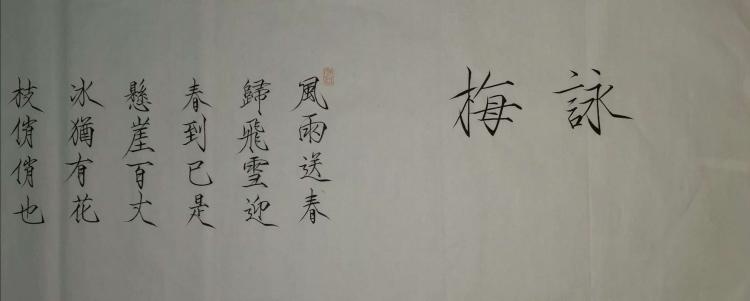 詠梅
風雨送春
歸飛雪迎
春到已是
懸崖百丈
冰猶有花
枝俏俏也